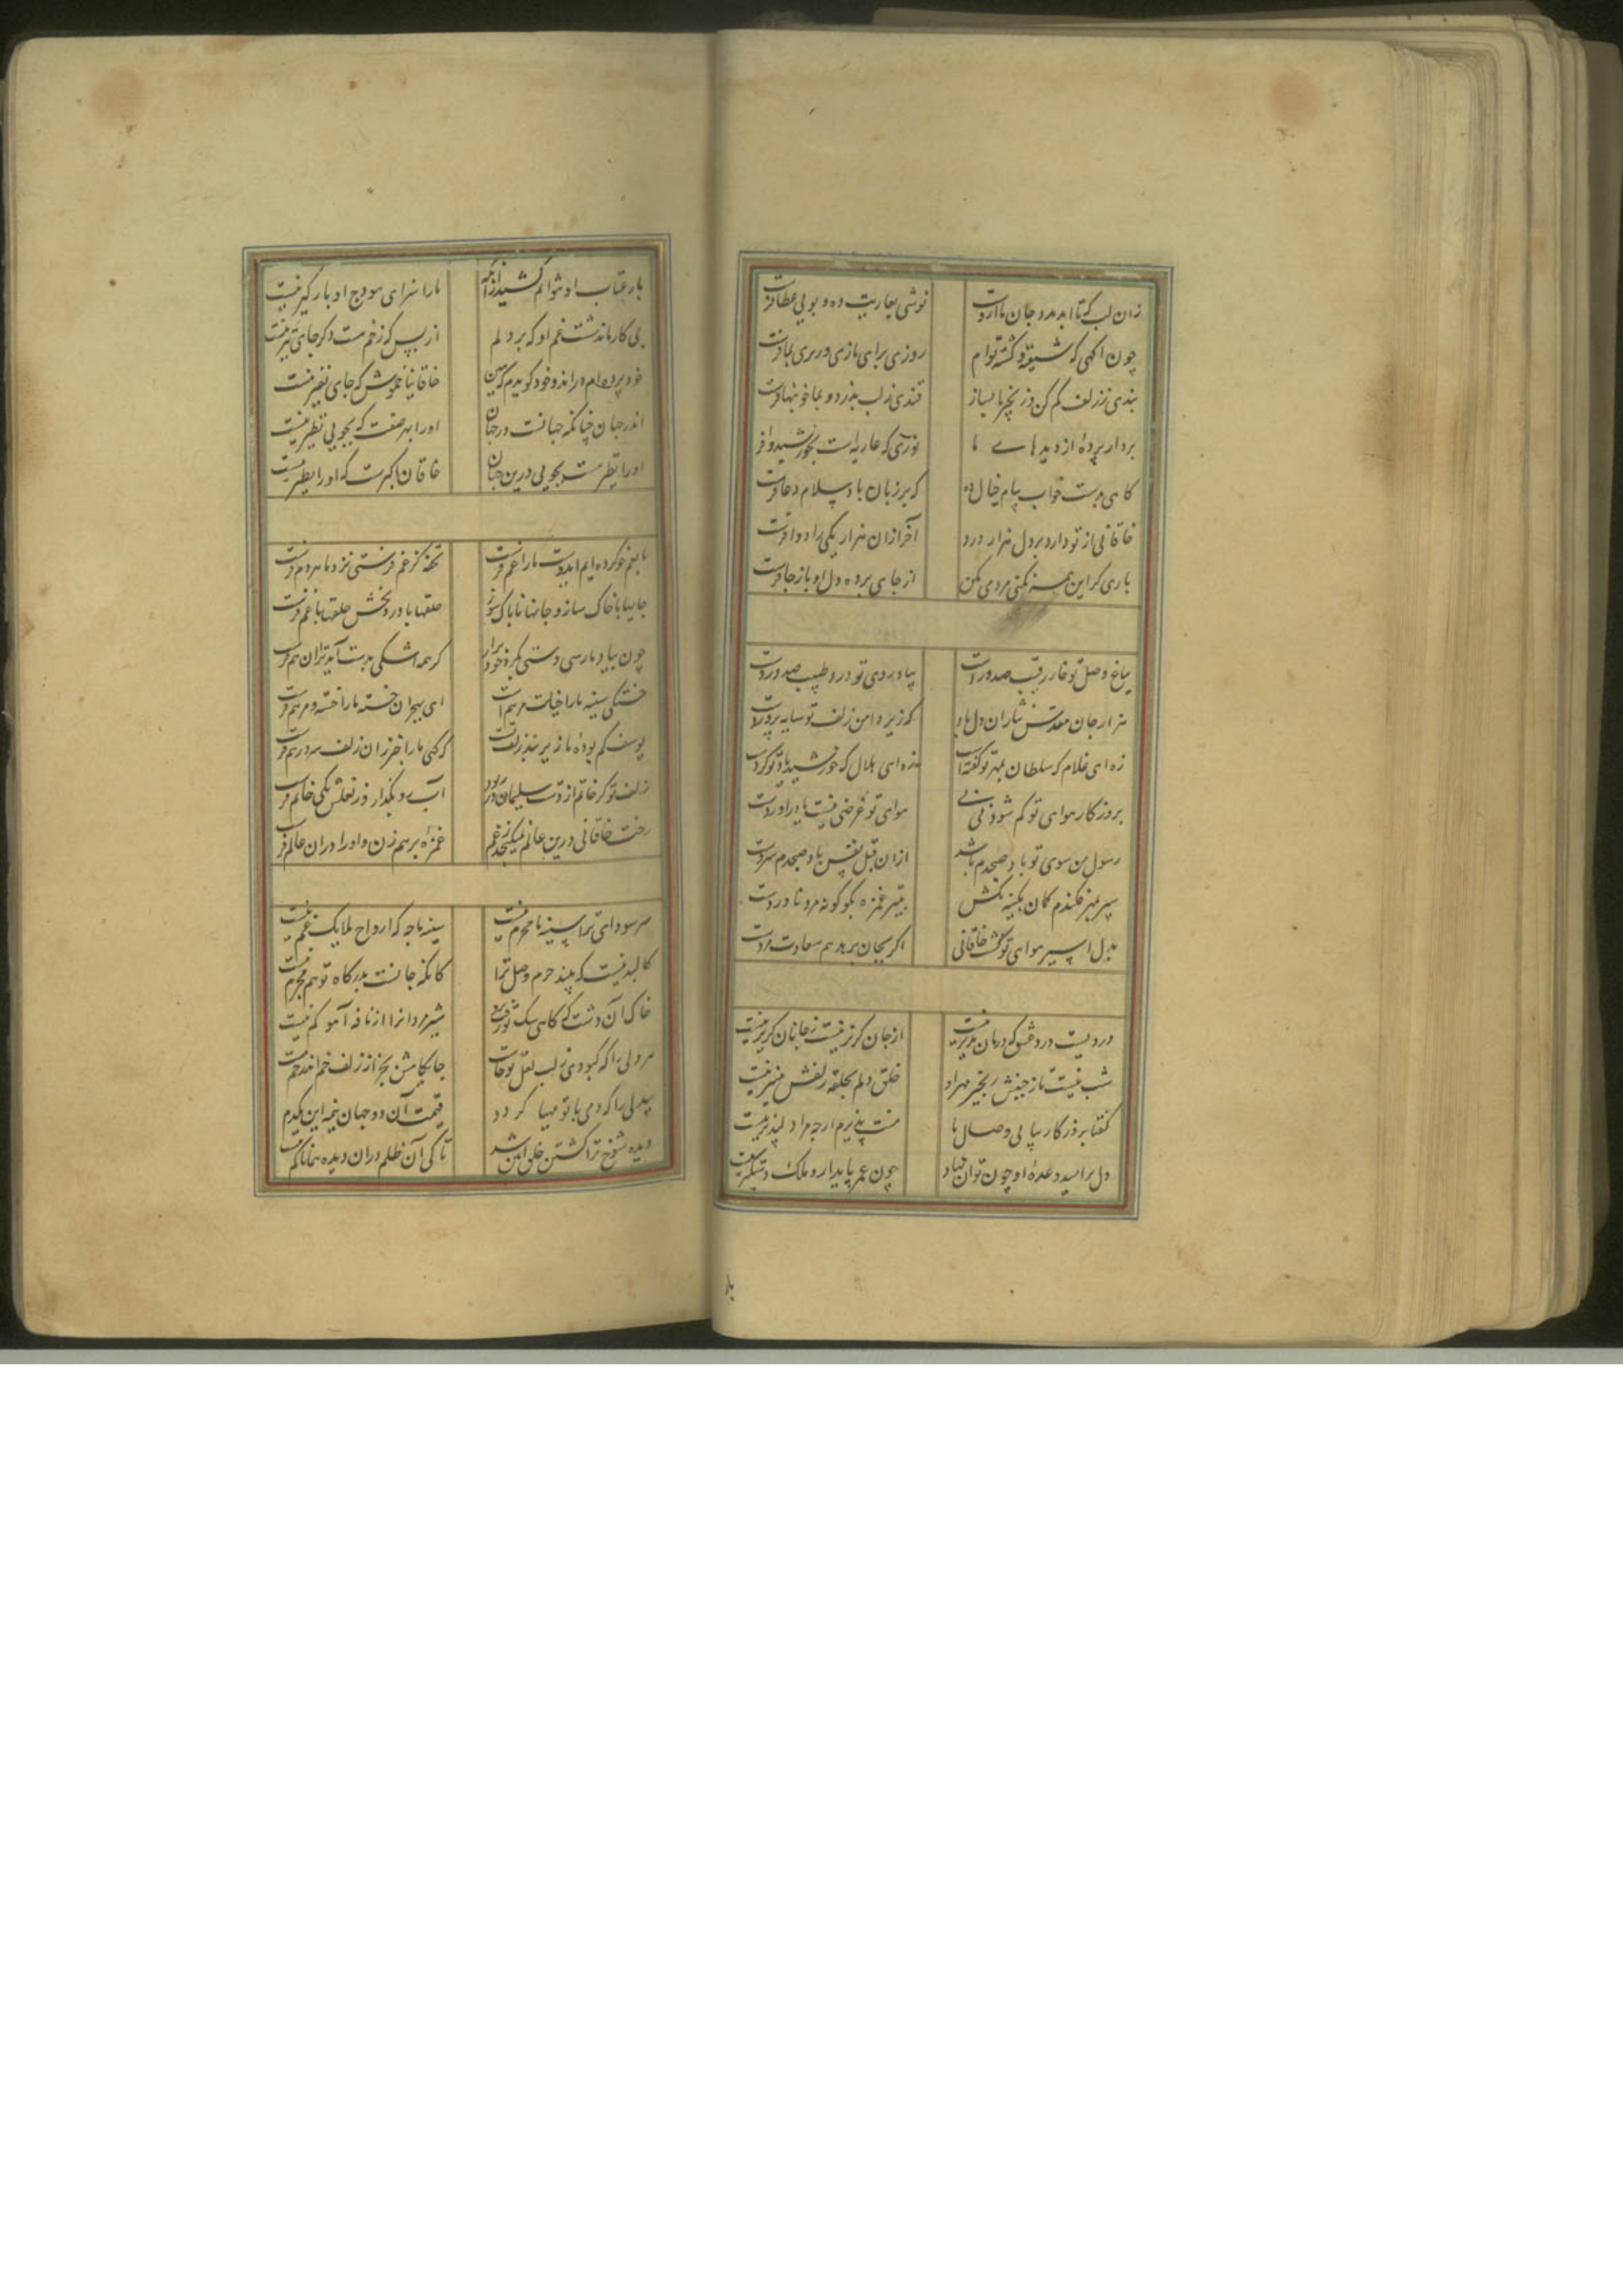 زان لب که تا ابد مدد جان ما ازوست نوشی بعاریت ده و بویی عطا فرست
چون آگهی که شیفته و کشته توایم روزی برای ما زی و ریزی بما فرست
بندی ز زلف کم کن و زنجیر ما بساز قندی ز لب بدزد و بما خونبها فرست
بردار پرده از دیدهای ما نوری که عاریه است بخورشید وا فرست
گاهی بدست خواب پیام خیال ده که بر زبان باد سلام و دعا فرست
خاقانی از تو دارد بر دل هزار درد آخر ازان هزار یکی را دوا فرست
باری گر این همه نکنی مردمی بکن از جای برده دل او باز جا فرست
بباغ وصل تو خار رقیب صد وردست بیاد روی تو درد طبیب صد دردست
هزار جان مقدس نثار آن دل باد که زیر دامن زلف تو سایه پروردست
زه ای غلام که سلطان بمهر تو گفته است زه ای هلال که خورشید یاد تو کردست
بروزگار هوای تو کم شود نی نی هوای تو عرضی نیست مادرآوردست
رسول من سوی تو باد صبحدم باشد ازان قبل نفس باد صبحدم سردست
سپر بمهر فکندم کمان بکینه مکش بتیر غمزه بگو کو نه مرد ناوردست
بدل اسیر هوای تو گشت خاقانی اگر بجان برهد هم سعادت مردست
دردیست درد عشق که درمان پذیر نیست از جان گزیر نیست ز جانان گزیر نیست
شب نیست تا ز جنبش زنجیر مهر او حلق دلم بحلقه زلفش اسیر نیست
گفتا بروزگار بیابی وصال ما منت پذیرم ارچه مرا دلپذیر نیست
دل بر امید وعده او چون توان نهاد چون عمر پایدار و فلک دستگیر نیست
بار
بار عتاب او نتوانم کشید ازانکه ما را سزای هودج او بارگیر نیست
بی کار ماند شست غم او که بر دلم از بس که زخم هست دگر جای تیر نیست
خود پرده ام دراند و خود گویدم که هین خاقانیا خموش که جای نفیر نیست
اندر جهان چنانکه جهانست در جهان او را بهر صفت که بجویی نظیر نیست
او را نظیر هست بجویی درین جهان خاقان اکبرست که او را نظیر نیست
ما بغم خو کرده ایم ای دوست ما را غم فرست تحفه کز غم فرستی نزد ما هر دم فرست
جامها با خاک ساز و جانها ناپاک سوز حلقها با درد بخش حلقها با غم فرست
چون بیاد ما رسی دستی بگرد خود برآر گر همه اشکی بدست آید ترا آن هم فرست
خستگی سینه ما را خیالت مرهم است ای بهجران خسته ما را خسته و مرهم فرست
یوسف گم بوده ما زیر بند زلف تست گه گهی ما را خبر زان زلف سر درهم فرست
زلف تو گر خاتم از دست سلیمان در ربود آب رو بگذار وز لعلش یکی خاتم فرست
رخت خاقانی درین عالم نمیگنجد ز غم غمزه برهم زن و او را دران عالم فرست
سر سودای ترا سینه ما محرم نیست سینه ما چه که ارواح ملایک غم نیست
کالبد نیست که بیند حرم وصل ترا کانکه جانست بدرگاه تو هم محرم نیست
خاک آن دشت که گاهی سگ تو رفت بر او شیرمردانرا از نافه آهو کم نیست
هر دلی را که کبودی ز لب لعل تو خاست جامه کامش بجز از زلف خم اندر خم نیست
بیدلی را که دمی با تو مهیا گردد قیمت آن دو جهان نیمه این یکدم
دیده شوخ ترا کشتن خلق آیین شد تا کی آن ظلم دران دیده همانا کم نیست